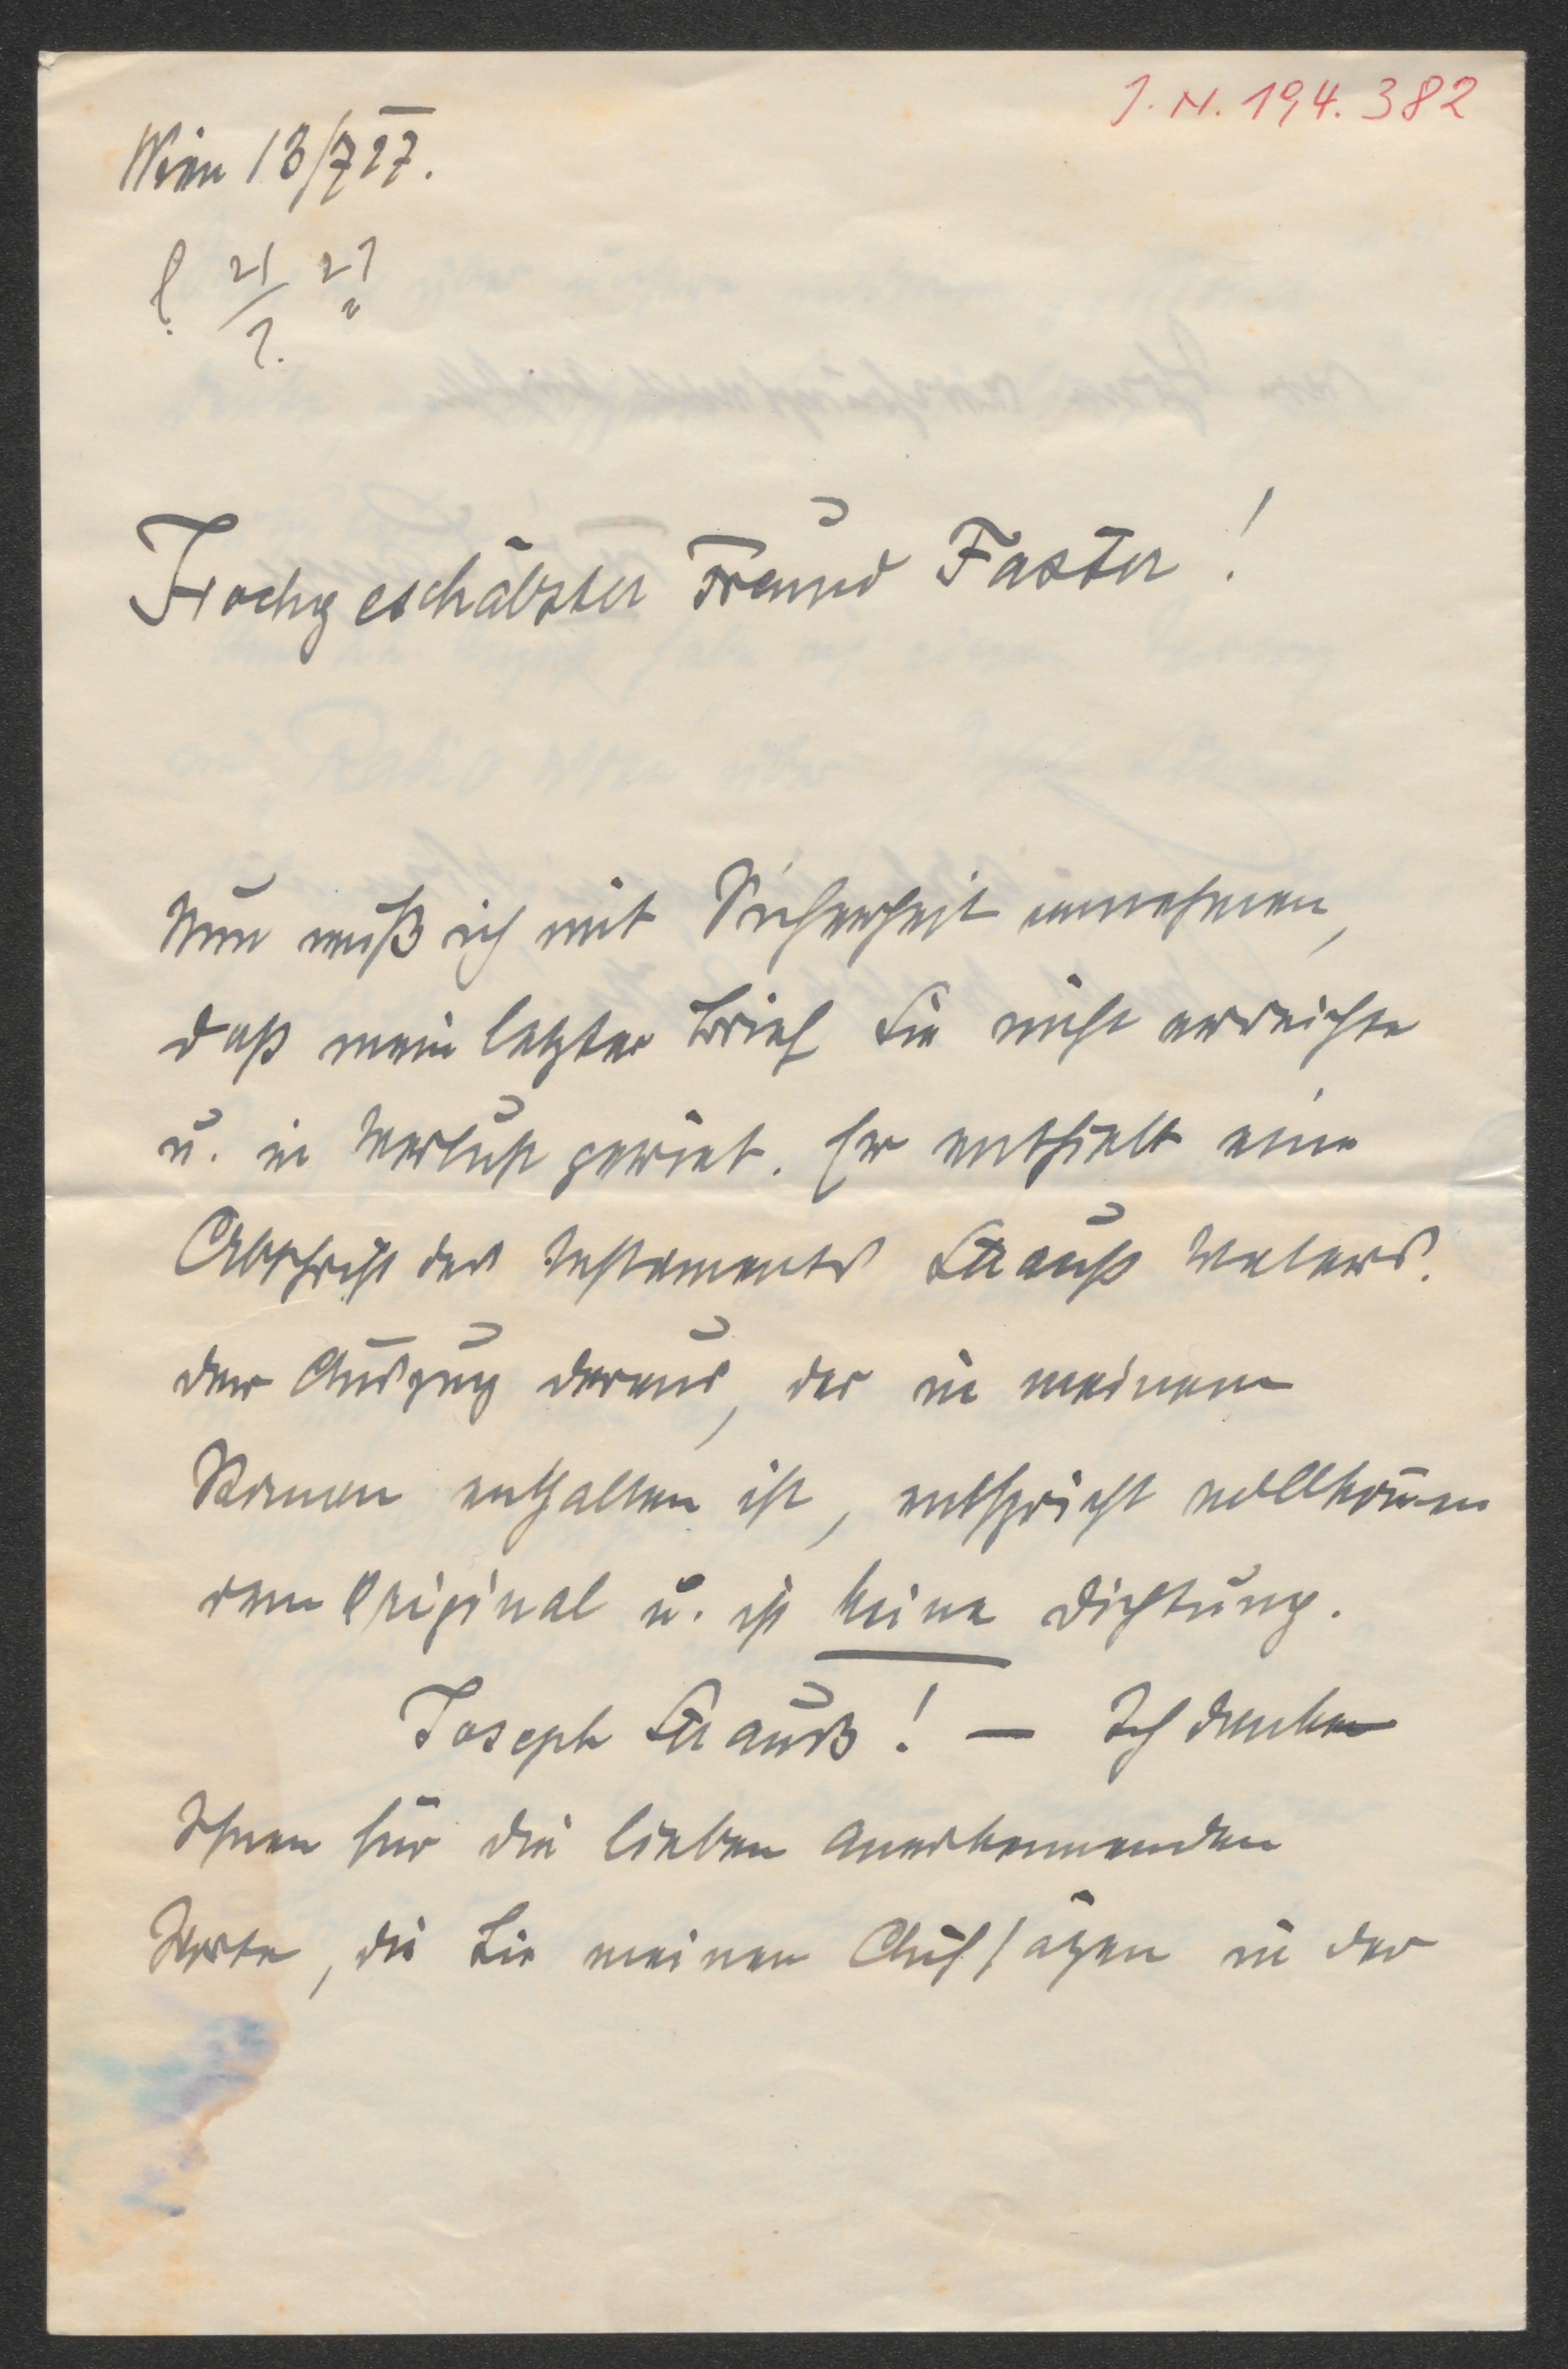 J. N. 194.382
Wien 13/7 27.
21/7. 27
Hochgeschätzter Freund Faster!
Nun muß ich mit Sicherheit annehmen,
daß mein letzter Brief Sie nicht erreichte
u. in Verlust geriet. Er enthielt eine
Abschrift des Testaments Strauß Vaters.
Der Auszug daraus, der in meinem
Roman enthalten ist, entspricht vollkom̅en
dem Original u. ist keine Dichtung.
Joseph Strauß! — Ich danke
Ihnen für die lieben anerkennenden
Worte, die Sie meinen Aufsätzen in der